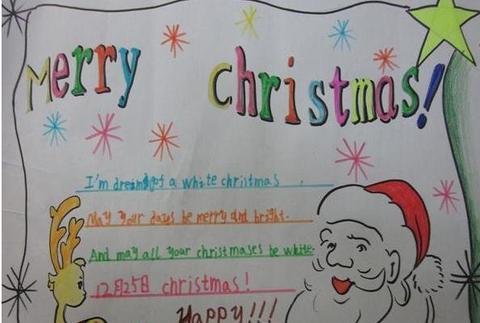 Merry christmas!
I'm dreaming of a white christmas.
May your days be merry and bright.
And may all your christmases be white.
12月25日 christmas!
Happy!!!